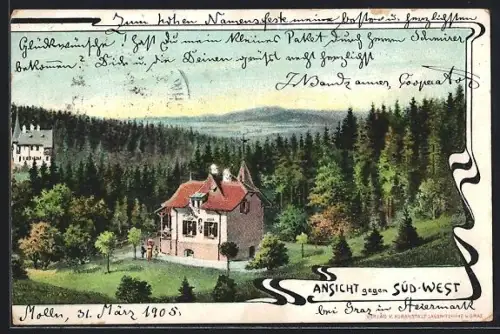 Zum hohen Namensfeste meine besten u. herzlichsten
Glückwünsche! Hast Du mein kleines Paket durch Herrn Schmirer
bekommen? Dich u. die Deinen grüßt recht herzlichst
Cooperator
ANSICHT gegen SÜD-WEST
Molln, 31. März 1905.
bei Graz in Steiermark